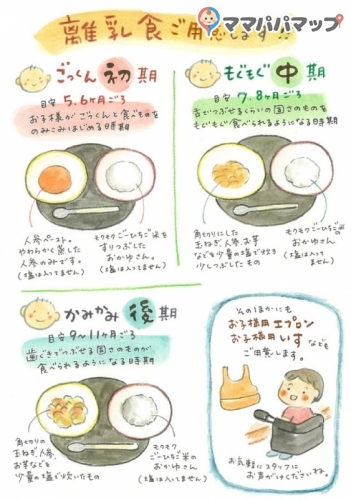 ママパパマップ
離乳食ご用意します!!
ごっくん初期
目安 5.6ヶ月ごろ
お子様がごっくんと食べものを
のみこみはじめる時期
人参ペースト。
やわらかく蒸した
人参のみです。
(塩は入ってません)
モクモクごーひちご米を
すりつぶした
おかゆさん。
(塩は入ってません)
もぐもぐ中期
目安 7.8ヶ月ごろ
舌でつぶせるくらいの固さのものを
もぐもぐ食べられるようになる時期
角切りにした
玉ねぎ、人参、お芋
などを少量の塩で炊き
少しつぶしたもの
モクモクごーひちご米の
おかゆさん。
(塩は入ってません)
かみかみ後期
目安 9~11ヶ月ごろ
歯ぐきでつぶせる固さのものが
食べられるようになる時期
角切りの
玉ねぎ、人参、
お芋などを
少量の塩で炊いたもの
モクモク
ごーひちご米の
おかゆさん
(塩は入ってません)
そのほかにも
お子様用エプロン
お子様用いすなども
ご用意します。
お気軽にスタッフに
お声がけくださいね。